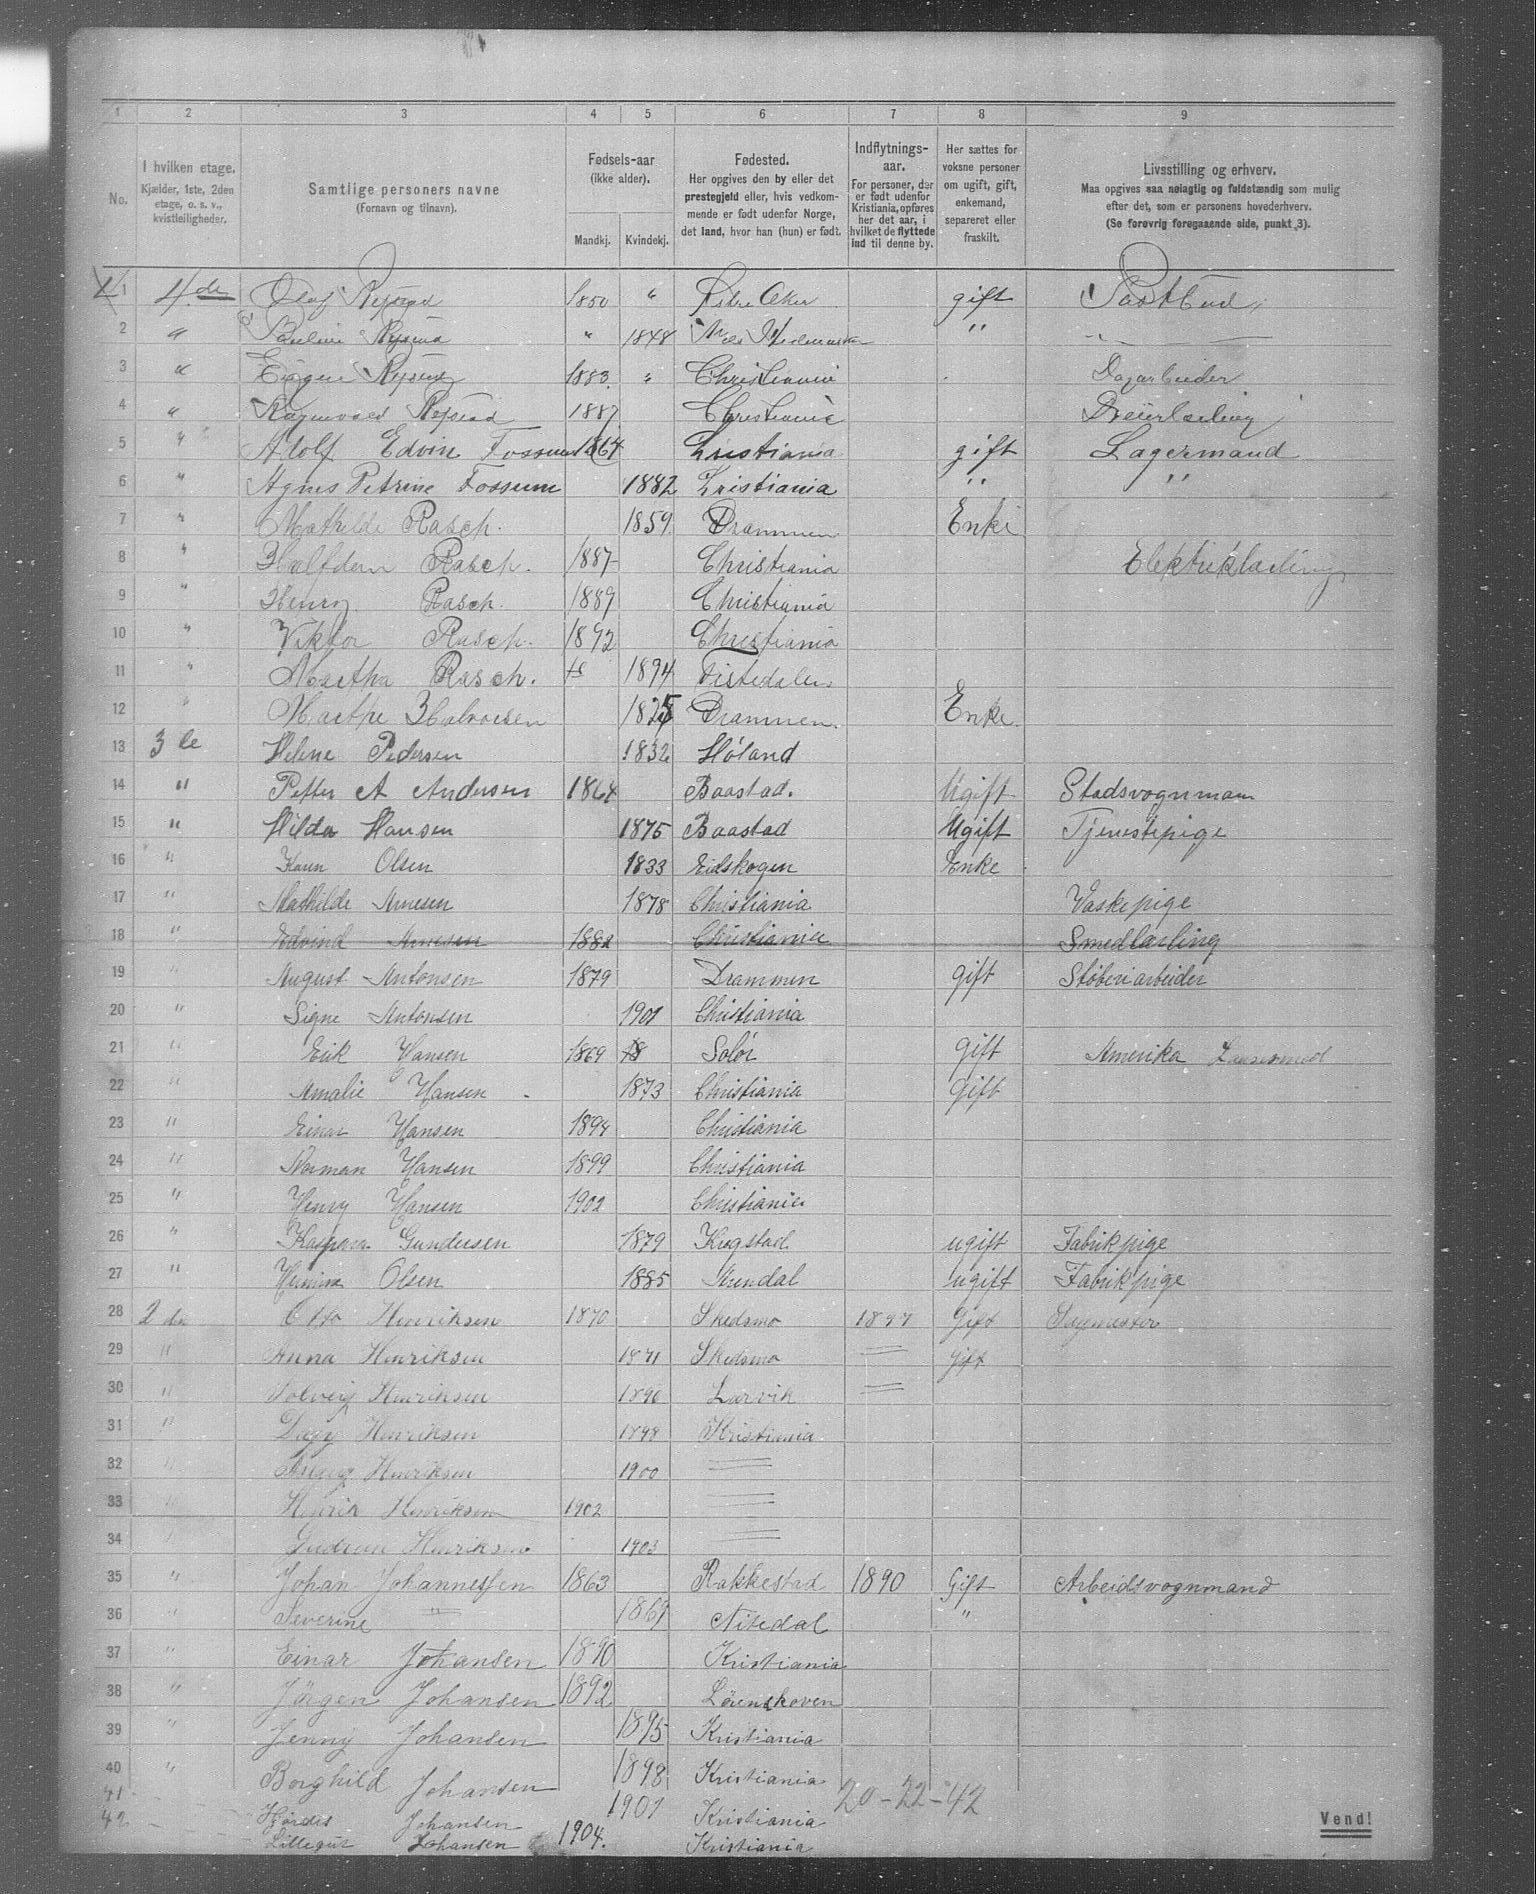 1 2 3 4 5 6 7 8 9
No.
I hvilken etage. Kjælder, 1ste, 2den etage, o. s. v., kvistleiligheder.
Samtlige personers navne (Fornavn og tilnavn).
Fødsels-aar (ikke alder).
Mandkj. Kvindekj.
Fødested. Her opgives den by eller det prestegjeld eller, hvis vedkommende er født udenfor Norge, det land, hvor han (hun) er født.
Indflytnings-aar. For personer, der er født udenfor Kristiania, opføres her det aar, i hvilket de flyttede ind til denne by.
Her sættes for voksne personer om ugift, gift, enkemand, separeret eller fraskilt.
Livsstilling og erhverv. Maa opgives saa nøiagtig og fuldstændig som mulig efter det, som er personens hovederhverv. (Se forøvrig foregaaende side, punkt 3).
1 4de Olaf 1850 " Aker gift Postbud
2 " " 1848 "
3 " 1883 " Christiania Dagarbeider
4 " 1887 Christiania Dreierlærling
5 " Adolf Edvin Fossum 1864 Kristiania gift Lagermand
6 " Agnes Petrine Fossum 1882 Kristiania " "
7 " Mathilde Rasch. 1859 Drammen Enke
8 " Halfdan Rasch. 1887 Christiania Elektriklærling
9 " Henry Rasch. 1889 Christiania
10 " Viktor Rasch. 1892 Christiania
11 " Martha Rasch. 18 1894 Tistedalen
12 " Marthe Halvorsen Drammen. Enke.
13 3de Helene Pedersen 1832 Høland
14 " Petter A Andersen 1864 Baastad. Ugift Stadsvognman
15 " Hilda Hansen 1875 Baastad Ugift Tjenestepige
16 " Karen Olsen 1833 Eidskogen Enke
17 " Mathilde Arnesen 1878 Christiania Vaskepige
18 " Edvind Arnesen 1882 Christiania Smedlærling
19 " August Antonsen 1879 Drammen gift Støberiarbeider
20 " Signe Antonsen 1901 Christiania
21 " Erik Hansen 1869 18 Solør gift Amerika
22 " Amalie Hansen 1873 Christiania Gift
23 " Einar Hansen 1894 Christiania
24 " Norman Hansen 1899 Christiania
25 " Henry Hansen 1902 Christiania
26 " Kaspara Gundersen 1879 Krogstad ugift Fabrikpige
27 " Olsen 1885 ugift Fabrikpige
28 2den Otto Henriksen 1870 Skedsmo 1897 Gift Sagmester
29 " Anna Henriksen 1871 Skedsmo " gift
30 " Solveig Henriksen 1896 Larvik "
31 " Dagny Henriksen 1898 Kristiania
32 " Henriksen 1900 "
33 " Henrik Henriksen 1902 "
34 " Gudrun Henriksen 1903 "
35 " Johan Johannessen 1863 Rakkestad 1890 Gift Arbeidsvognmand
36 " Severine " 1869 Nitedal "
37 " Einar Johansen 1890 Kristiania
38 " Jørgen Johansen 1892 Lørenskoven
39 " Jenny Johansen 1895 Kristiania
40 " Borghild Johansen 1898 Kristiania
41 Hjørdis Johansen 1901 Kristiania 20-22-42
42 Lillegut Johansen 1904. Kristiania
Vend!